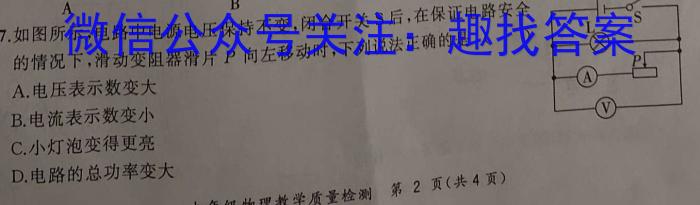 A B
7.如图所示,电路中电源电压保持不变,闭合开关S后,在保证电路安全
微信公众号关注：趣找答案
的情况下,滑动变阻器滑片 P 向左移动时,下列说法正确的是
A.电压表示数变大
B.电流表示数变小
C.小灯泡变得更亮
D.电路的总功率变大
S
P
A
V
级物理教学质量检测 第 2 页(共4页)